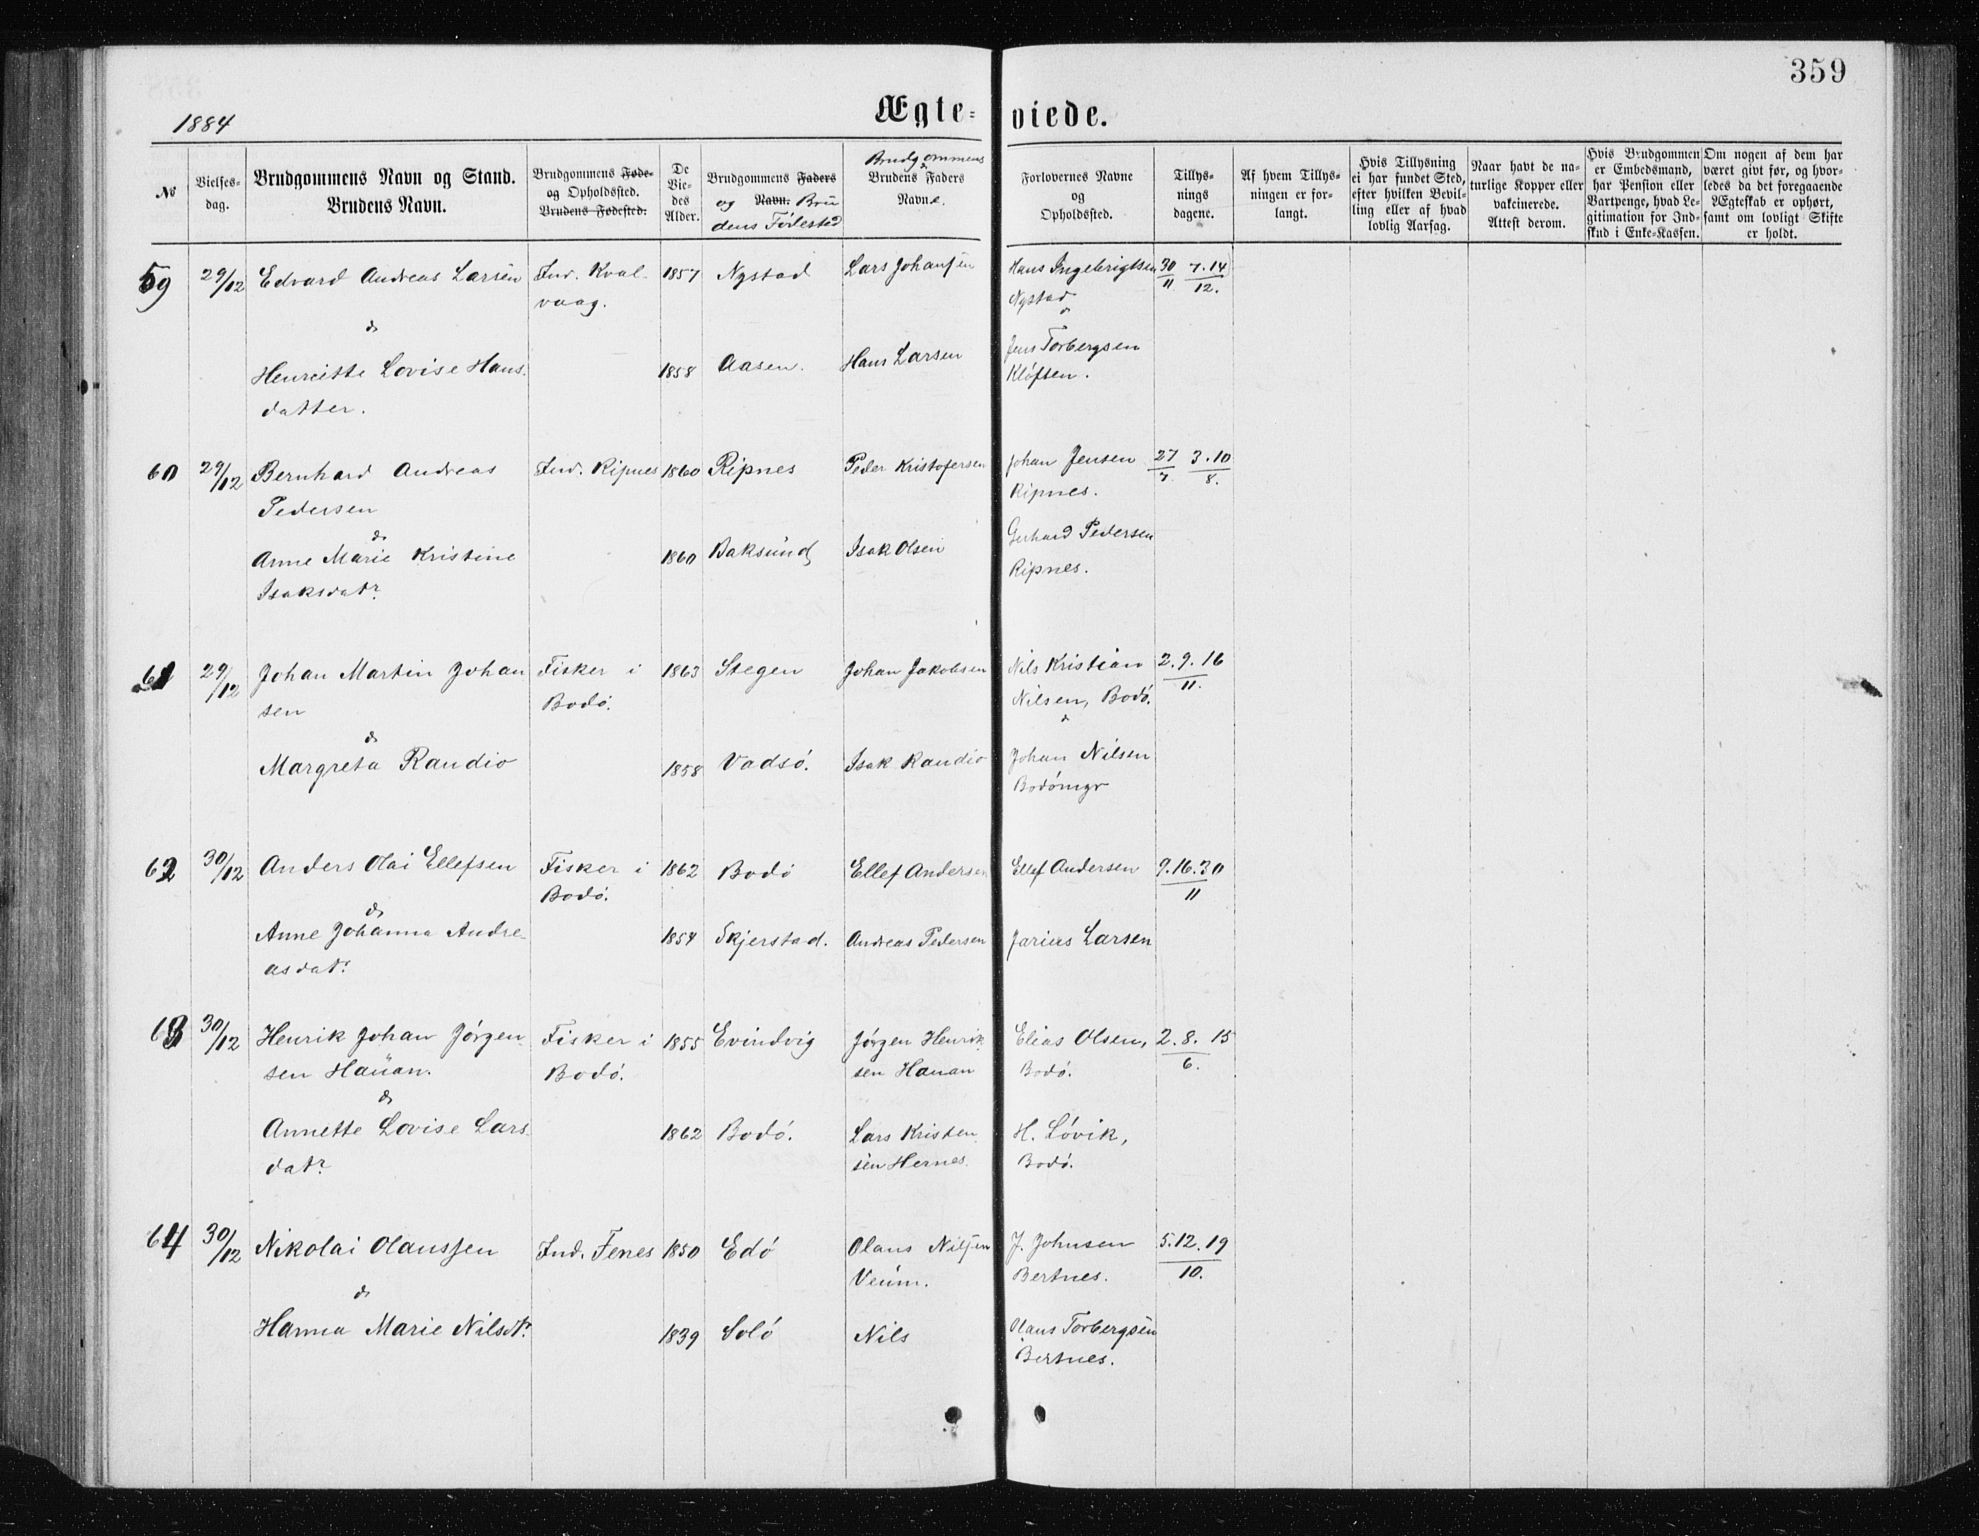 359
1884
Ægte- viede.
No
Vielses-
dag.
Brudgommens Navn og Stand.
Brudens Navn.
Brudgommens Føde-
og Opholdssted.
Brudens Fødested.
De
Vie-
des
Alder.
Brudgommens Faders
og Navn. Bru
dens Fødested
Brudgommens
&
Brudens Faders
Navne.
Forlovernes Navne
og
Opholdssted.
Tillys-
nings
dagene.
Af hvem Tillys-
ningen er for-
langt.
Hvis Tillysning
ei har fundet Sted,
efter hvilken Bevil-
ling eller af hvad
lovlig Aarsag.
Naar havt de na-
turlige Kopper eller
vakcinerede.
Attest derom.
Hvis Brudgommen
er Embedsmand,
har Pension eller
Vartpenge, hvad Le-
gitimation for Ind-
skud i Enke-Kassen.
Om nogen af dem har
været givt før, og hvor-
ledes da det foregaaende
Ægteskab er ophørt,
samt om lovligt Skifte
er holdt.
59 29/12 Edvard Andreas Larsen Ind. Kval- 1857 Nystad Lars Johansen Hans Ingebrigtsen 30/11 7.14/12.
vaag. Nystad
& &
Henriette Lovise Hans- 1858 Aasen. Hans Larsen Jens Torbergsen
datter. Kløften.
60 29/12 Bernhard Andreas Ind. Ripnes 1860 Ripnes Peder Kristofersen Johan Jensen 27/7 3.10/8.
Pedersen Ripnes.
&
Anne Marie Kristine 1860 Baksund Isak Olsen Gerhard Pedersen
Isaksdatr Ripnes.
61 29/12 Johan Martin Johan Fisker i 1863 Stegen Johan Jakobsen Nils Kristian 2.9.16/11.
sen Bodø. Nilsen, Bodø.
& &
Margreta Randio 1858 Vadsø. Isak Randio Johan Nilsen
Bodømgr
62 30/12 Anders Olai Ellefsen Fisker i 1862 Bodø Ellef Andersen Ellef Andersen 9.16.30/11
Bodø.
&
Anne Johanna Andre- 1854 Skjerstad. Andreas Pedersen Jarius Larsen
asdatr
63 30/12 Henrik Johan Jørgen Fisker i 1855 Evindvig Jørgen Henrik Elias Olsen, 2.8.15/6.
sen Hauan. Bodø. sen Hauan Bodø.
&
Annette Lovise Lars- 1862 Bodø. Lars Kristen H. Løvik,
datr sen Hernes. Bodø.
64 30/12 Nikolai Olaussen Ind. Fenes 1850 Edø Olaus Nilsen J. Johnsen 5.12.19/10.
Veum. Bertnes.
&
Hanna Marie Nilsdtr 1839 Solø Nils Olaus Torbergsen
Bertnes.